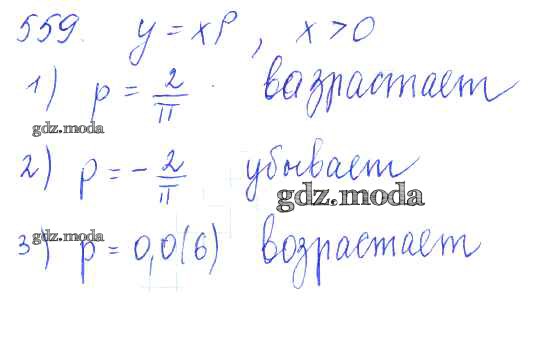 559. y = x^p, x > 0
1) p = 2/π вазрастает
gdz.moda
2) p = - 2/π убывает
gdz.moda
3) p = 0,0(6) возрастает
gdz.moda